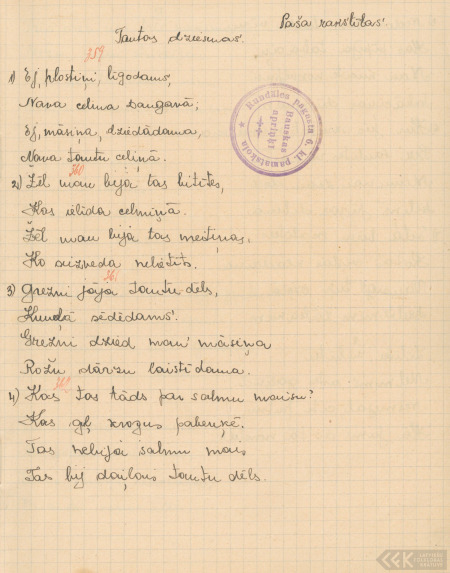 Paša rakstītas.
Tautas dziesmas.
259
1) Ej, plostiņi, līgodams,
Nava celma Daugavā;
Ej, māsiņa, dziedādama,
Nava tautu celiņā.
260
2) Žēl man bija tas bitītes,
Kas ielīda celmiņā.
Žēl man bija tas meitiņas,
Ko aizveda nelietīts.
261
3) Grezni jāja tautu dēls,
Kumeļā sēdēdams.
Grezni dzied man' māsiņa
Rožu dārzu laistīdama.
4) Kas tas tāds par salmu maisu?
Kas gļ krogus pabeņķē.
Tas nebija salmu mais,
Tas bij daiļais tautu dēls.
Rundāles pagasta 6. kl. pamatskola
Bauskas
apriņķī
LATVIEŠU
FOLKLORAS
KRĀTUVE